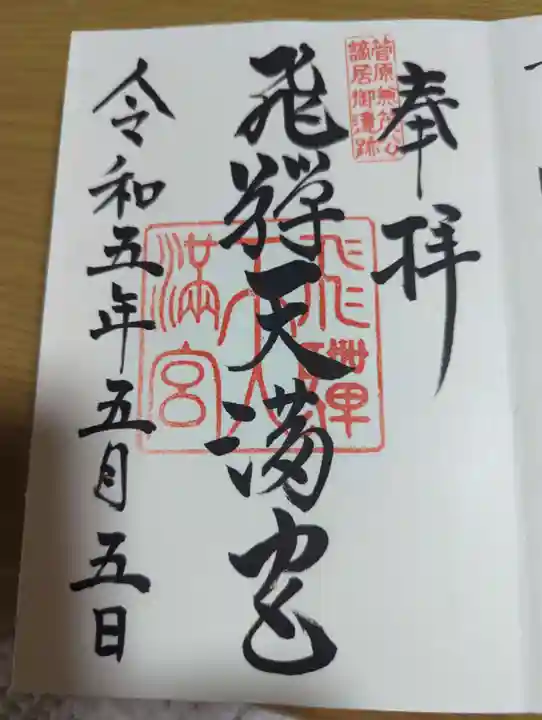 奉拝
菅原兼茂公
謫居御遺跡
飛騨天満宮
飛騨
天
満宮
令和五年五月五日